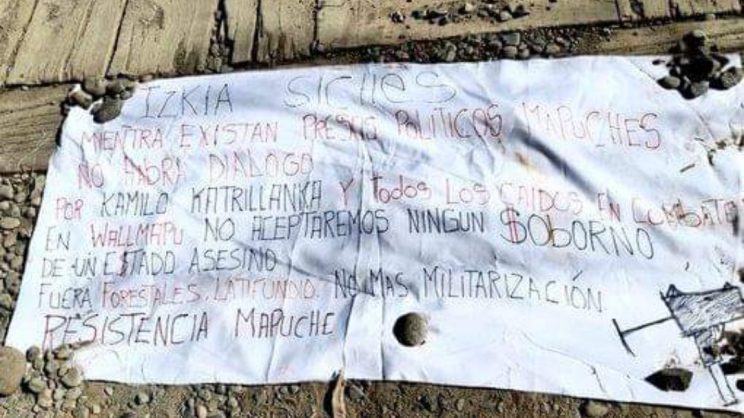 IZKIA SICHES
MIENTRA EXISTAN PRESOS POLITICOS MAPUCHES
NO ABDRA DIALOGO
POR KAMILO KATRILLANKA Y TODOS LOS CAIDOS EN COMBATE
EN WALLMAPU NO ACEPTAREMOS NINGUN $OBORNO
DE UN ESTADO ASESINO
FUERA FORESTALES, LATIFUNDIO. NO MAS MILITARIZACIÓN
RESISTENCIA MAPUCHE